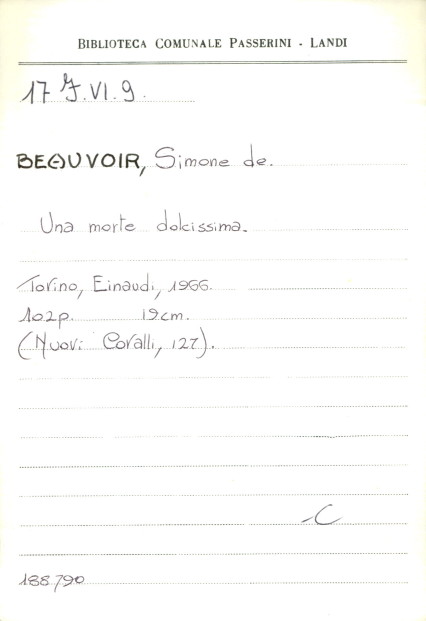 BIBLIOTECA COMUNALE PASSERINI - LANDI
17 J.VI.9.
BEAUVOIR, Simone de.
Una morte dolcissima.
Torino, Einaudi, 1966.
102p. 19cm.
(Nuovi Coralli, 127).
C
188790